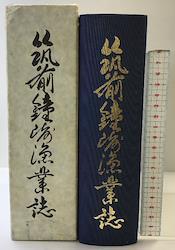 筑前鐘崎漁業誌
筑前鐘崎漁業誌